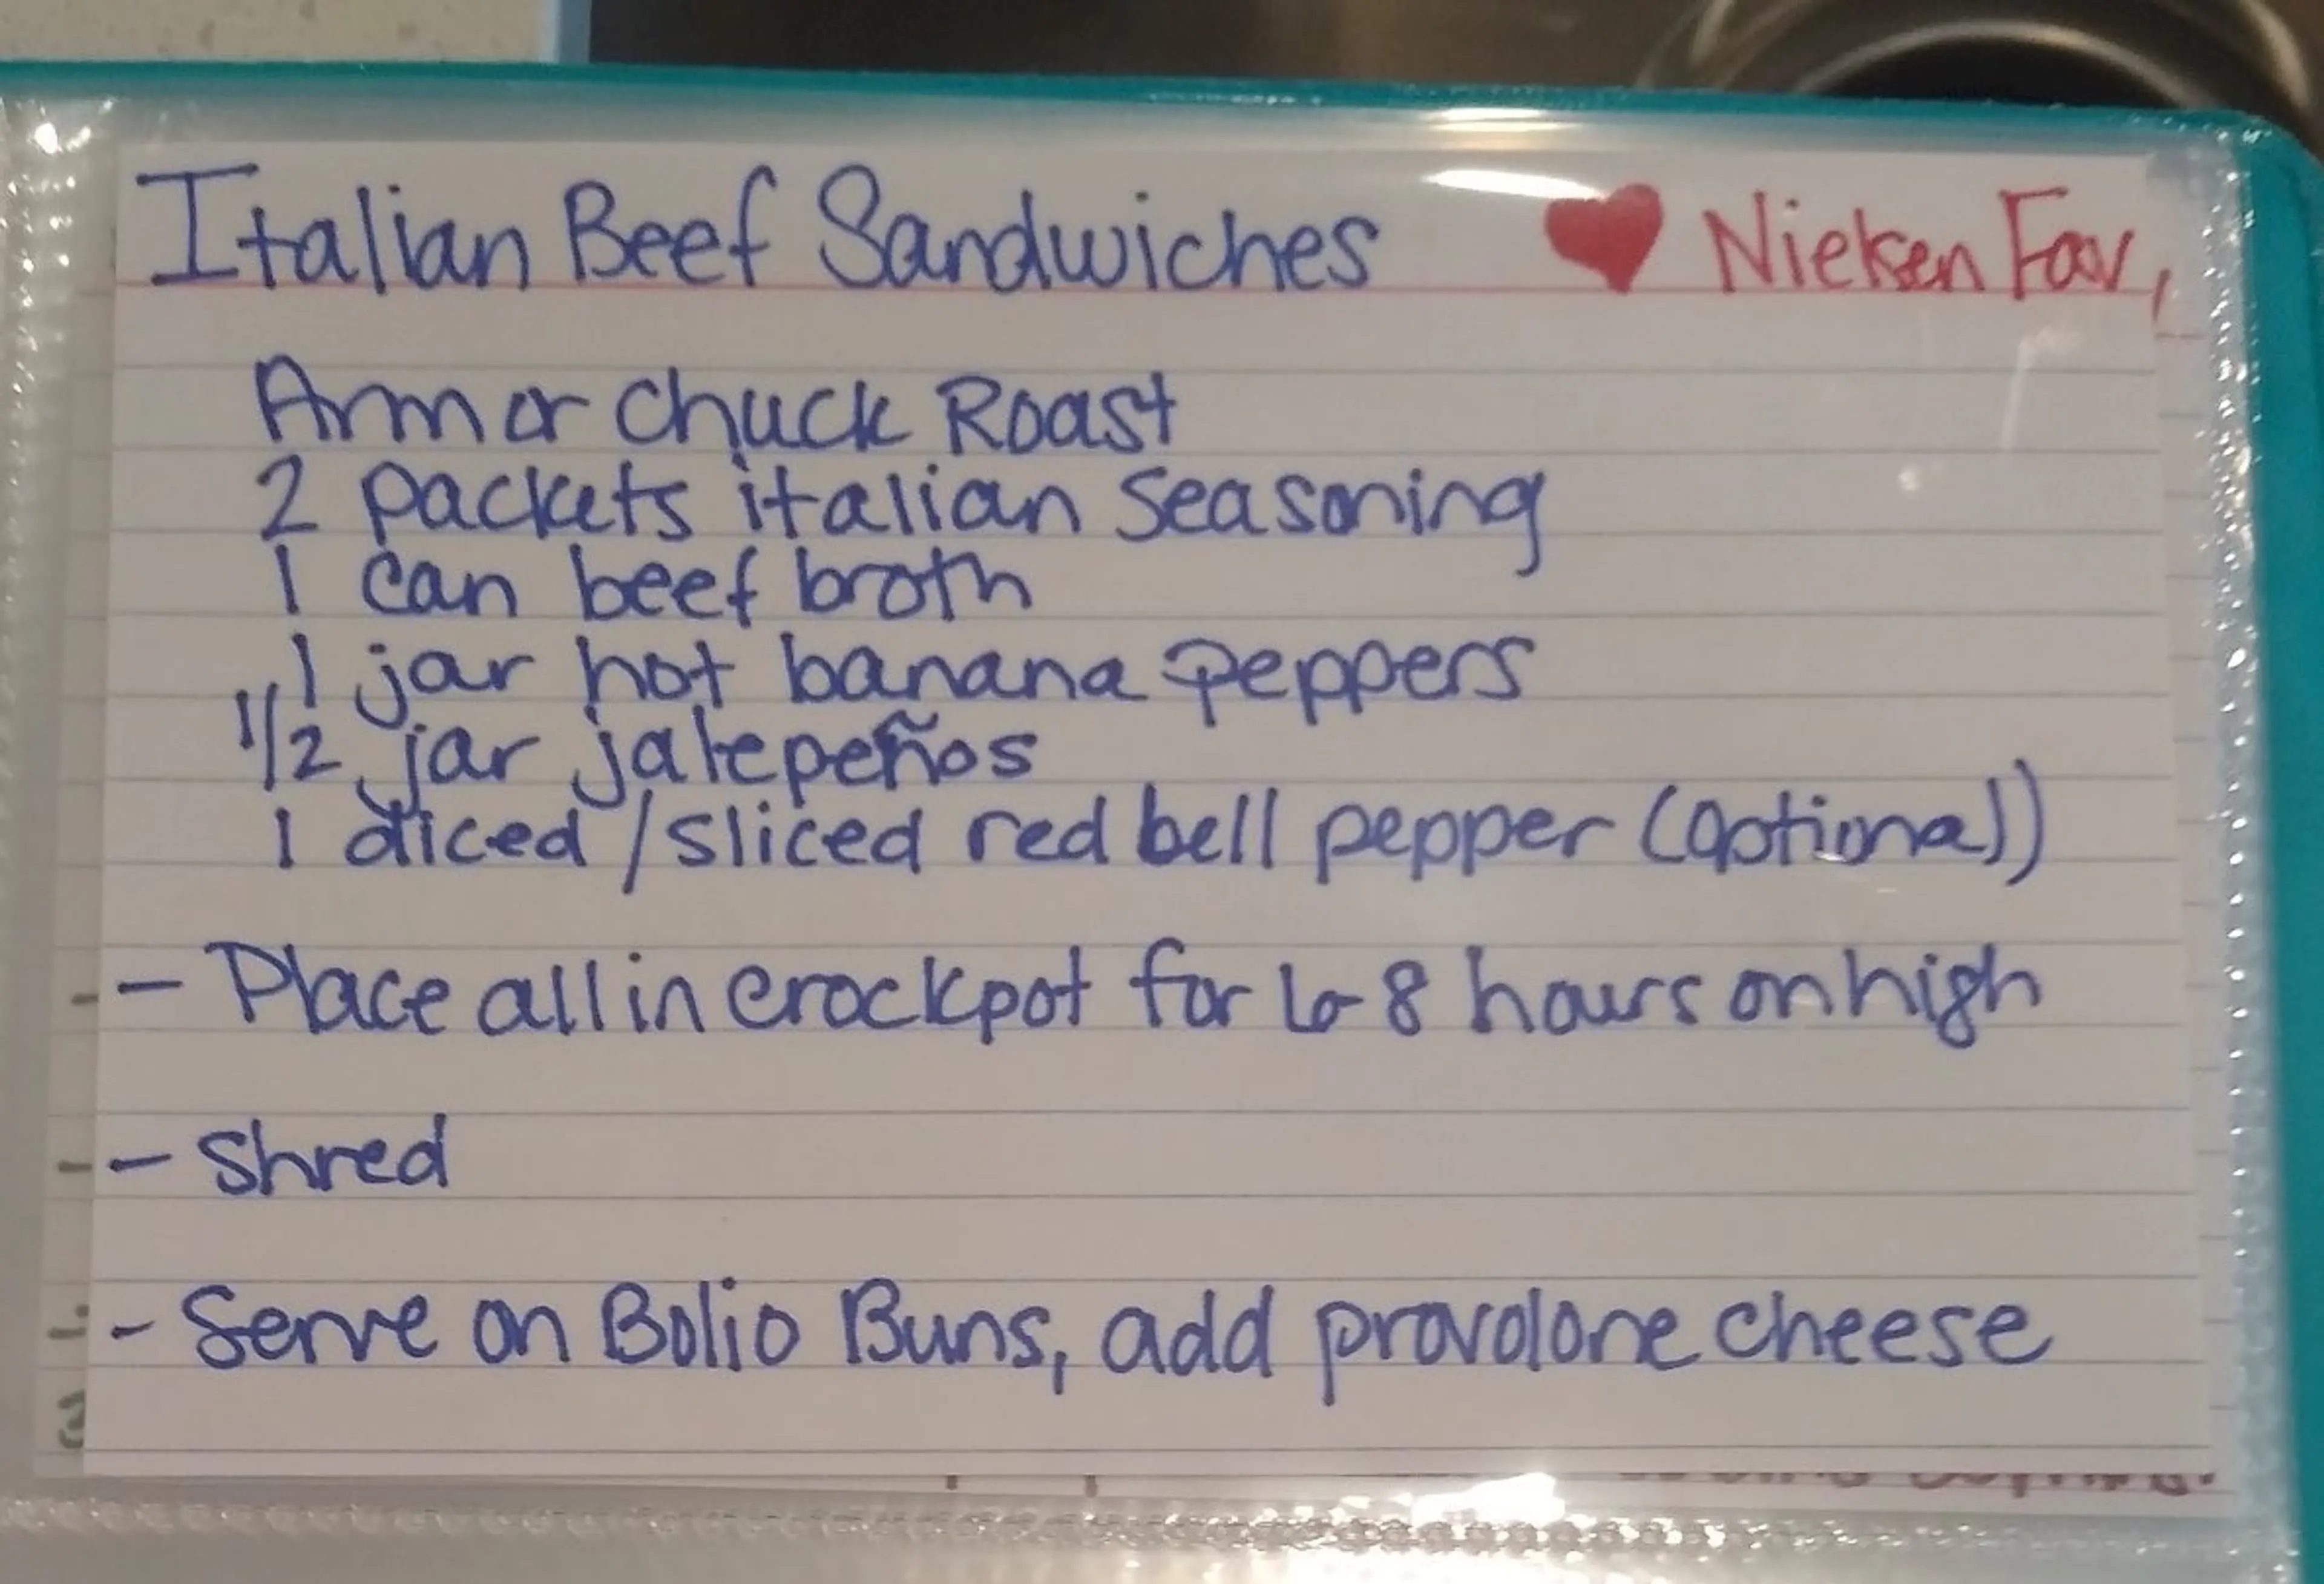 Italian Beef Sandwiches ♥ Nielsen Fav,
Arm or Chuck Roast
2 packets italian seasoning
1 can beef broth
1 jar hot banana peppers
1/2 jar jalepeños
1 diced/sliced red bell pepper (optional)
- Place all in crockpot for 6-8 hours on high
- Shred
- Serve on Bolio Buns, add provolone cheese